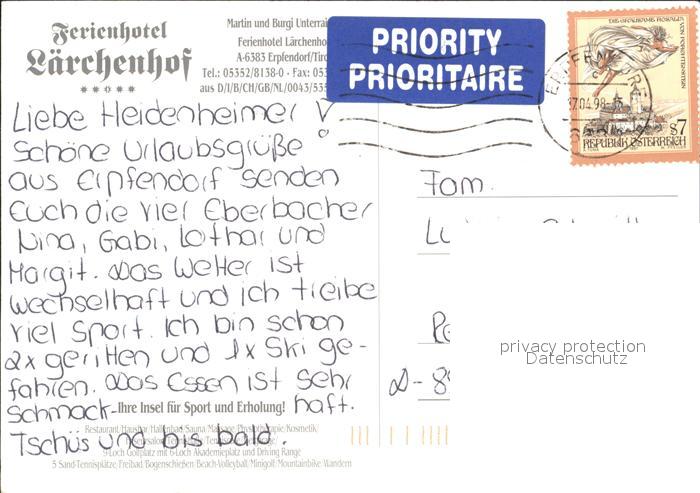 Ferienhotel
Lärchenhof
Martin und Burgi Unterrai
Ferienhotel Lärchenho
A-6383 Erpfendorf/Tiro
Tel.: 05352/8138-0 · Fax: 053
aus D/I/B/CH/GB/NL/0043/535
PRIORITY
PRIORITAIRE
DIE GRAUSAME ROSALIA
VON PORTENSTEIN
S7
REPUBLIK ÖSTERREICH
7.04.98
Liebe Heidenheimer!
Schöne Urlaubsgrüße
aus Erpfendorf senden
Euch die vier Eberbacher
Nina, Gabi, Lothar und
Margit. Das Wetter ist
wechselhaft und ich treibe
viel Sport. Ich bin schon
2x geritten und 1x Ski ge-
fahren. Das Essen ist sehr
schmack- haft.
Tschüs und bis bald.
Ihre Insel für Sport und Erholung!
Restaurant/Hausbar/Hallenbad/Sauna/Massage/Physiotherapie/Kosmetik/
9-Loch Golfplatz mit 6-Loch Akademieplatz und Driving Range
5 Sand-Tennisplätze/Freibad/Bogenschießen/Beach-Volleyball/Minigolf/Mountainbike/Wandern
Fam.
D-8
privacy protection
Datenschutz